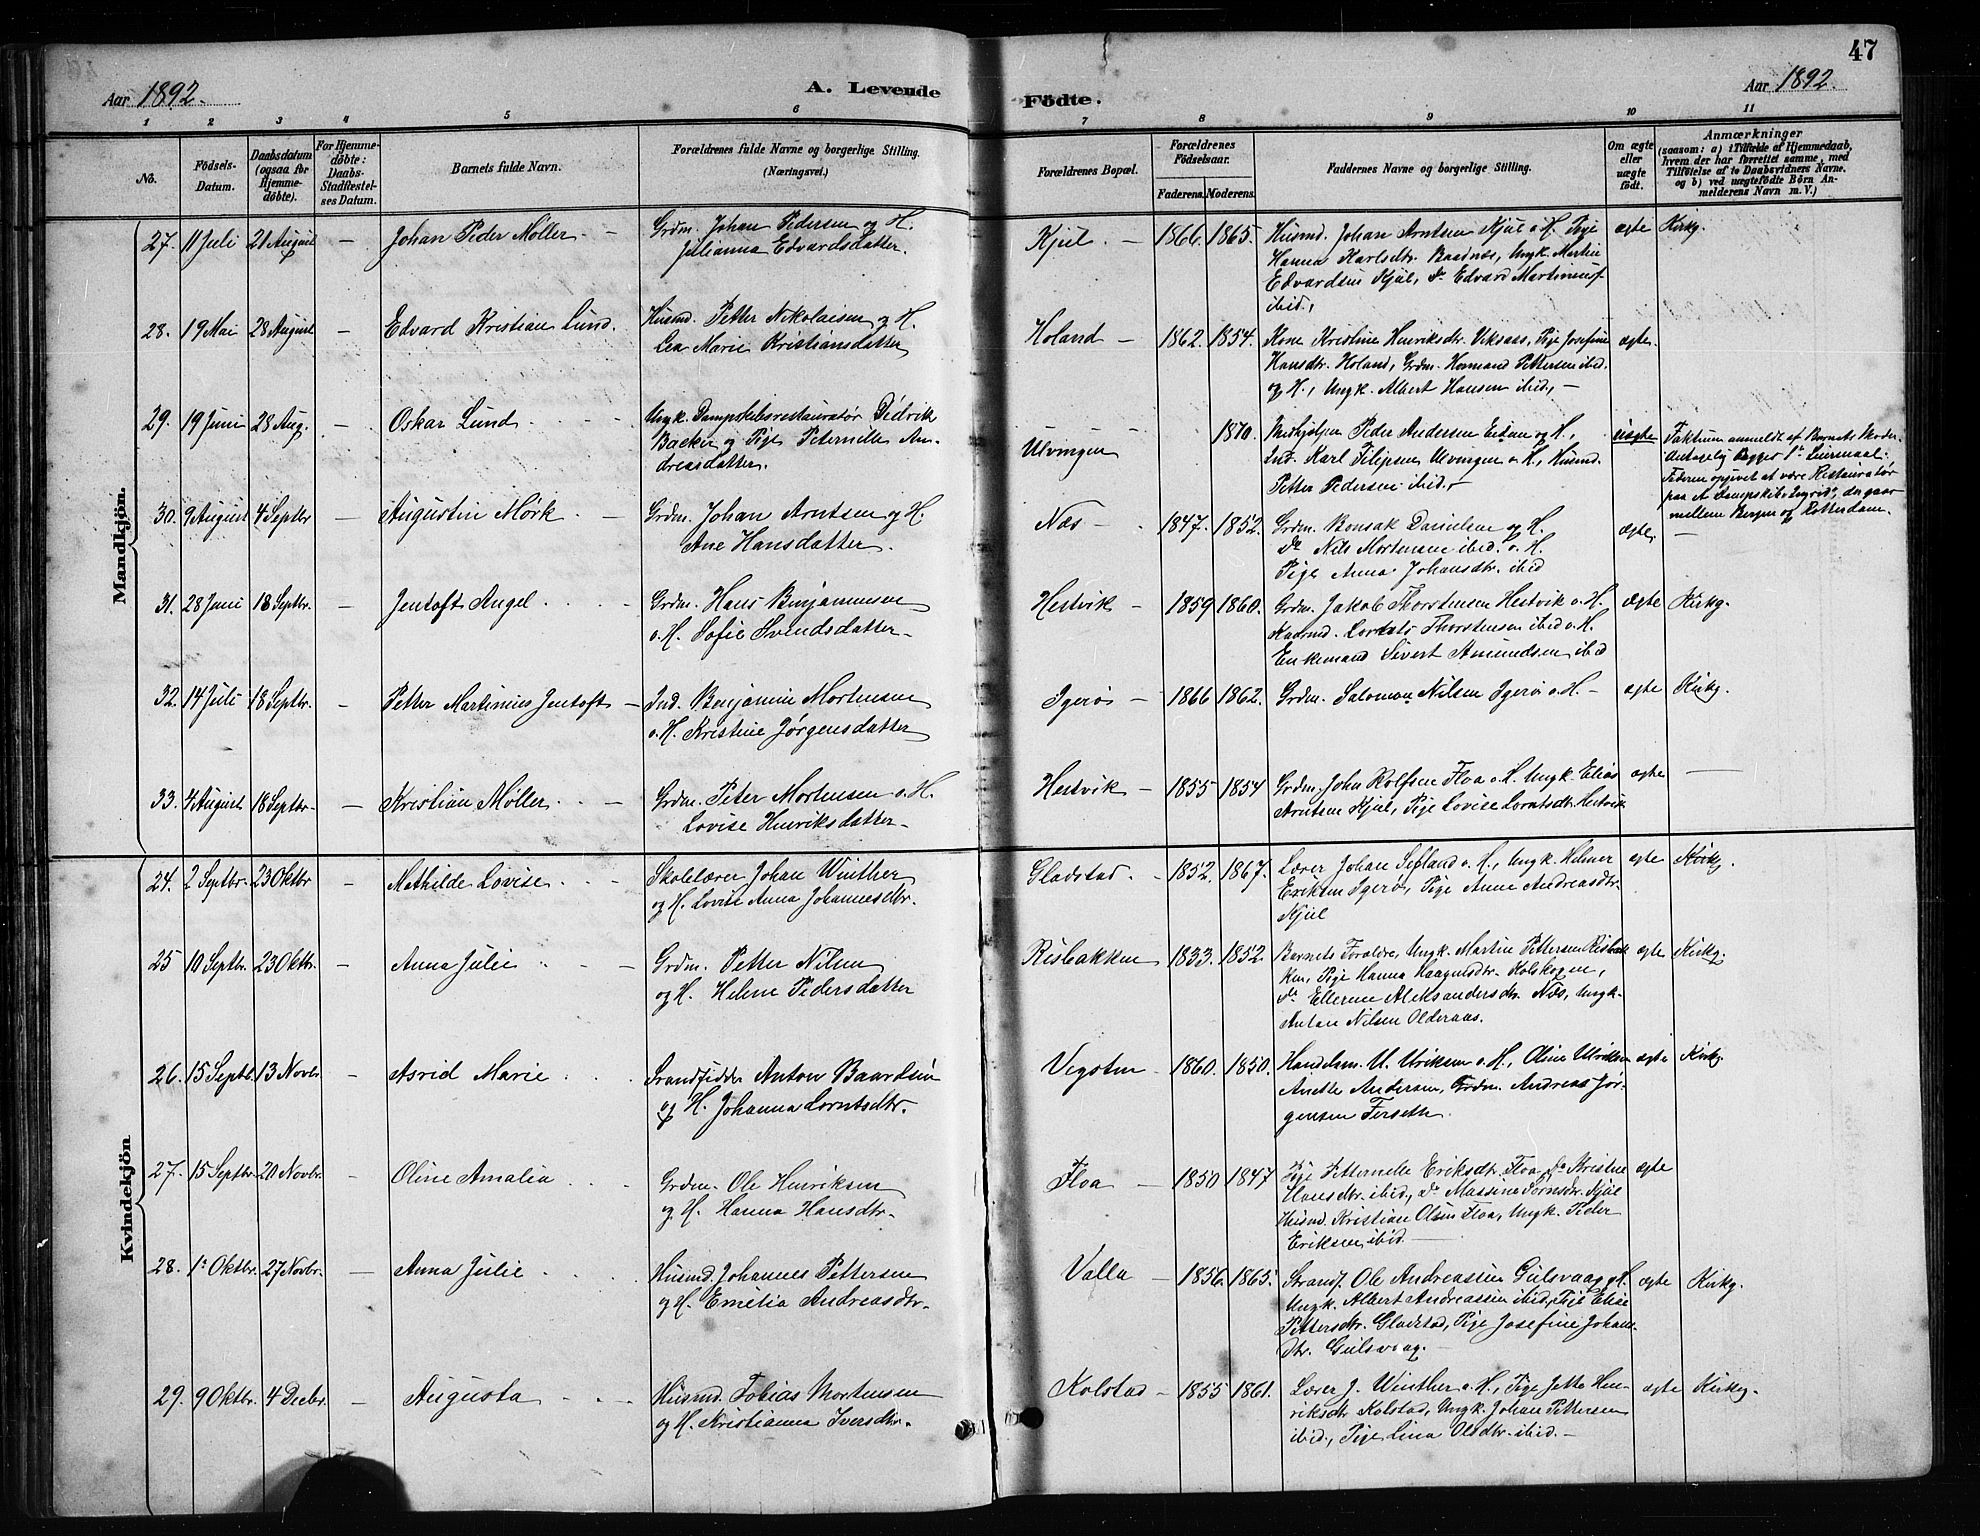 47
Aar 1892.
A. Levende Födte.
Aar 1892.
1 2 3 4 5 6 7 8 9 10 11
No.
Födsels-Datum.
Daabsdatum (ogsaa for Hjemme-döbte).
For Hjemme-döbte: Daabs-Stadfæstel-ses Datum.
Barnets fulde Navn.
Forældrenes fulde Navne og borgerlige Stilling. (Næringsvei.)
Forældrenes Bopæl.
Forældrenes Födselsaar.
Faderens. Moderens.
Faddernes Navne og borgerlige Stilling.
Om ægte eller uægte født.
Anmærkninger
(saasom: a) i Tilfælde af Hjemmedaab,
hvem der har forrettet samme, med
Tilföielse af to Daabsvidners Navne.
og b) ved uægtefödte Börn An-
melderens Navn m. V.)
Mandkjön.
27. 11 Juli 21 August — Johan Peder Møller — Grdm. Johan Pedersen og H.
Julianna Edvardsdatter.
Kjul — 1866. 1865. Husmd. Johan Arntsen Kjul o. H. Pige
Hanna Karlsdtr. Baadnes, Ungk. Martin
Edvardsen Kjul, Do Edvard Martinus
ibid.,
ægte Kirkg.
28. 19 Mai 28 August — Edvard Kristian Lund. Husmd. Petter Nikolaisen og H.
Lea Marie Kristiansdatter
Holand — 1862. 1854. Kone Kristine Henriksdtr. Viksaas, Pige Josefine
Hansdtr. Holand, Grdm. Hormand Pettersen ibid.
og H., Ungk. Albert Hansen ibid., —
ægte.
29. 19 Juni 28 Aug. — Oskar Lund Ungk. Dampskibsrestauratør Didrik
Backer og Pige Peternille An-
dreasdatter.
Ulvingen 1870. Peder Andersen og H.,
Ind. Karl Filipsen Ulvingen o. H., Husmd.
Petter Pedersen ibid.
uægte Faktum anmeldt af Barnets Moder.
Antagelig begges 1ste Leiermaal.
Faderen opgivet at være Restauratør
paa et Dampskib "Ingrid", der gaar
mellem Bergen og Rotterdam.
30. 9 August 4 Septbr — Augustin Mørk Grdm. Johan Arntsen og H.
Ane Hansdatter.
Næs — 1847. 1852. Grdm. Bonsak Danielsen og H.
Do Nils Mortensen ibid. o. H.
Pige Anna Johansdtr. ibid
ægte. —
31. 28 Juni 18 Septbr. — Jentoft Angel Grdm. Hans Benjaminsen
o. H. Sofie Svendsdatter.
Hestvik — 1859 1860. Grdm. Jakob Thorstensen Hestvik o. H.
Thorstensen ibid o. H.
Enkemand Sivert Amundsen ibid
ægte Kirkg.
32. 14 Juli 18 Septbr. — Petter Martinius Jentoft — Ind. Benjamin Mortensen
o. H. Kristine Jørgensdatter
Igerøs — 1866 1862. Grdm. Salomon Nilsen Igerø o. H. —
ægte Kirkg.
33. 4 August 18 Septbr. — Kristian Møller Grdm. Peter Mortensen o. H.
Lovise Henriksdatter.
Hestvik — 1855 1854 Grdm. John Rolfsen Floa o. H. Ungk. Elias
Arntsen Kjul, Pige Lovise Lorntsdtr. Hestvik
ægte —
Kvindekjön.
24. 2 Septbr. 23 Oktbr — Mathilde Lovise Skolelærer Johan Winther
og H. Lovise Anna Johannesdtr.
Gladstad. 1852. 1867. Lærer Johan Sefland o. H., Ungk. Helmer
Eriksen Igerø, Pige Anne Andreasdtr.
Kjul
ægte Kirkg.
25 10 Septbr. 23 Oktbr. — Anna Julie Grdm. Petter Nilsen
og H. Helene Pedersdatter
Risbakken — 1833. 1852. Barnets Forældre, Ungk. Martin Pettersen Risbak-
ken, Pige Hanna Haagensdtr. Holskogen,
do Ellerine Aleksandersdtr. Næs, Ungk.
Anton Nilsen Olderaas.
ægte Kirkg.
26. 15 Septb. 13 Novbr — Astrid Marie Strandsidder Anton Baardsen
og H. Johanna Lorntsdtr.
Vegsten — 1860. 1850. Handelsm. U. Ulriksen o. H., Oline Ulriksen
Anette Andersen, Grdm. Andreas Jør-
gensen Ferseth.
ægte Kirkg.
27. 15 Septbr. 20 Novbr. — Oline Amalia Grdm. Ole Henriksen
og H. Hanna Hansdtr.
Floa — 1850 1847 Pige Petternelle Eriksdtr. Floa, Do Kristine
Hansdtr. ibid., do Massine Kjul
Husmd. Kristian Olsen Floa, Ungk. Peder
Eriksen ibid. —
ægte
28. 1ste Oktbr. 27 Novbr. — Anna Julie Husmd. Johannes Pettersen
og H. Emelia Andreasdtr.
Valla — 1856. 1865. Strands. Ole Andreassen Gulsvaag o. H.
Ungk. Albert Andreassen ibid, Pige Elise
Pettersdtr. Gladstad, Pige Josefine Johans-
dtr. Gulsvaag. —
ægte Kirkg.
29. 9 Oktbr. 4 Decbr. — Augusta Husmd. Tobias Mortensen
og H. Kristianna Iversdtr.
Kolstad — 1855 1861. Lærer J. Winther o. H., Pige Jette Hen-
riksdtr Kolstad, Ungk. Johan Pettersen
ibid., Pige Lina Olsdtr. ibid. —
ægte Kirkg.